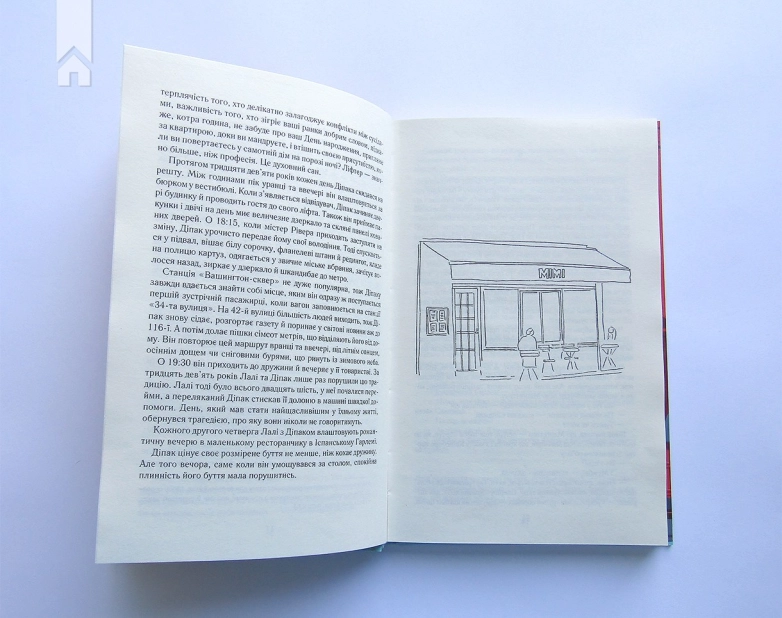 терплячість того, хто делікатно залагоджує конфлікти між сусіда-
ми, важливість того, хто зігріє ваші ранки добрим словом,
же, котра година, не забуде про ваш День народження,
за квартирою, доки ви мандруєте, і втішить своєю присутністю,
ли ви повертаєтесь у самотній дім на порозі ночі? Ліфтер —
но більше, ніж професія. Це духовний сан.
Протягом тридцяти дев'яти років кожен день Діпака складався
решту. Між годинами пік уранці та ввечері він влаштовується за
бюрком у вестибюлі. Коли з'являється відвідувач, Діпак зачиняє две-
рі будинку й проводить гостя до свого ліфта. Також він приймає па-
кунки і двічі на день миє величезне дзеркало та скляні панелі кова-
них дверей. О 18:15, коли містер Рівера приходить заступати на
зміну, Діпак урочисто передає йому свої володіння. Тоді спускаєть-
ся у підвал, вішає білу сорочку, фланелеві штани й редингот, кладе
на полицю картуз, одягається у звичне міське вбрання, зачісує во-
лосся назад, зиркає у дзеркало й шкандибає до метро.
Станція «Вашингтон-сквер» не дуже популярна, тож Діпаку
завжди вдається знайти собі місце, яким він одразу ж поступається
першій зустрічній пасажирці, коли вагон заповнюється на станції
«34-та вулиця». На 42-й вулиці більшість людей виходить, тож Ді-
пак знову сідає, розгортає газету й поринає у світові новини аж до
116-ї. А потім долає пішки сімсот метрів, що відділяють його від до-
му. Він повторює цей маршрут вранці та ввечері, під літнім сонцем,
осіннім дощем чи сніговими бурями, що ринуть із зимового неба.
О 19:30 він приходить до дружини й вечеряє у її товаристві. За
тридцять дев'ять років Лалі та Діпак лише раз порушили цю тра-
дицію. Лалі тоді було всього двадцять шість, у неї почалися пере-
йми, а переляканий Діпак стискав її долоню в машині швидкої до-
помоги. День, який мав стати найщасливішим у їхньому житті,
обернувся трагедією, про яку вони ніколи не говоритимуть.
Кожного другого четверга Лалі з Діпаком влаштовують роман-
тичну вечерю в маленькому ресторанчику в Іспанському Гарлемі.
Діпак цінує своє розмірене буття не менше, ніж кохає дружину.
Але того вечора, саме коли він умощувався за столом, спокійна
плинність його буття мала порушитись.
MIMI